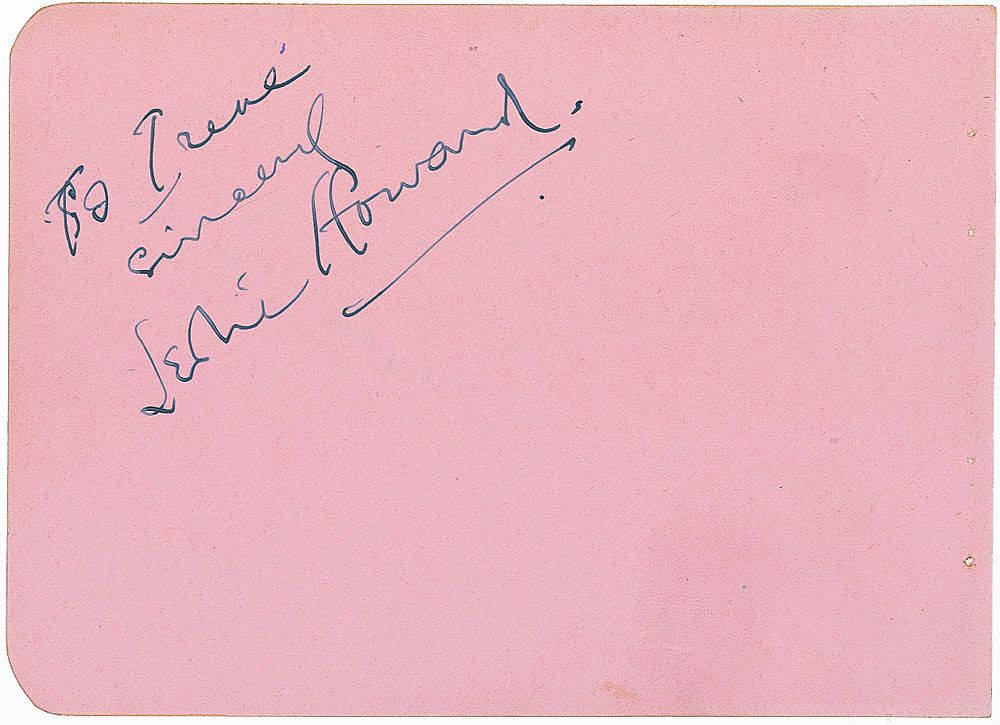 To Irene
sincerely
Leslie Howard.